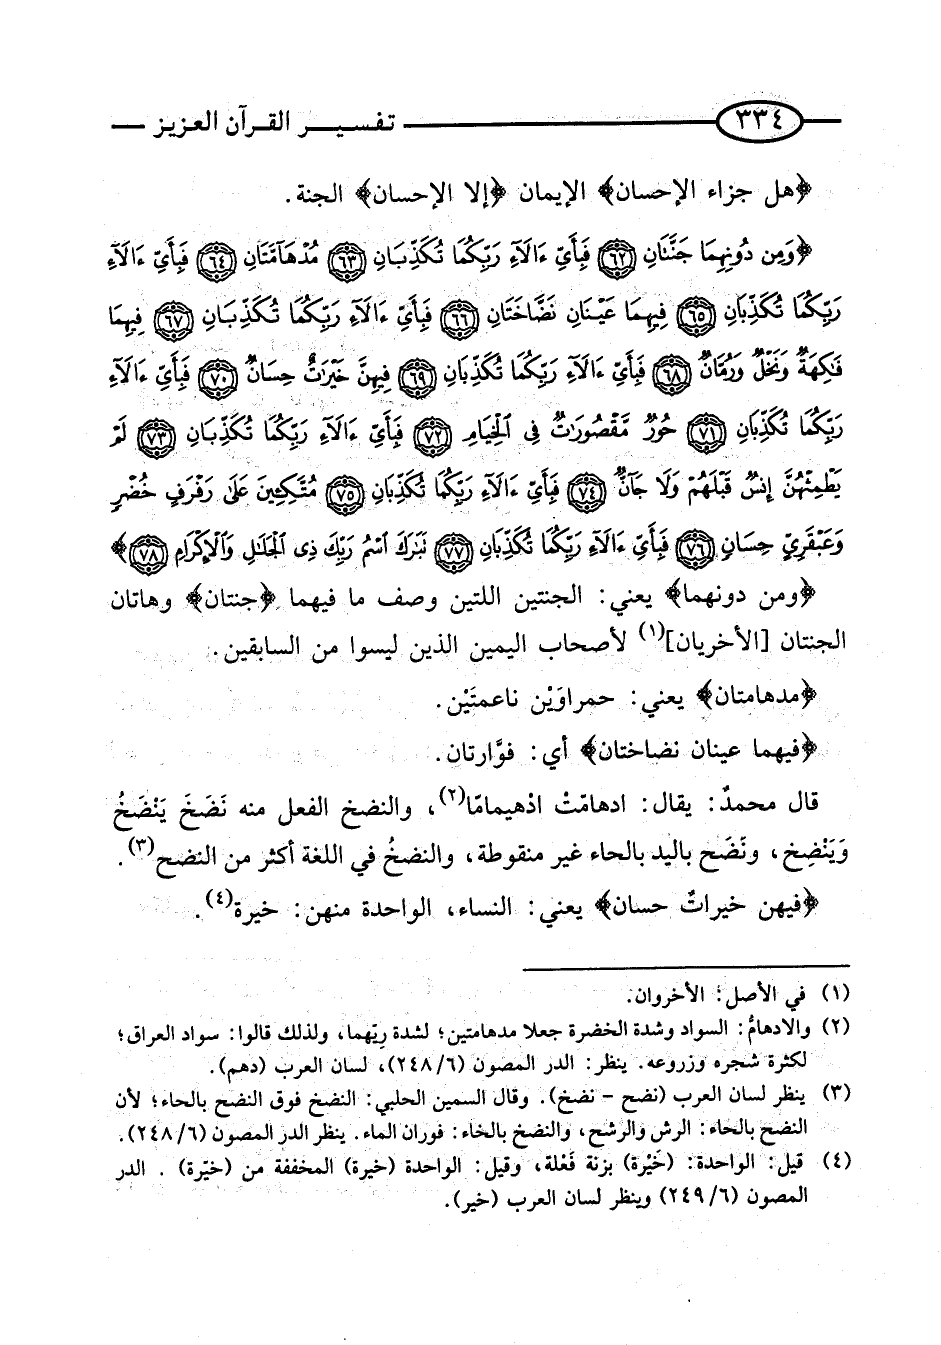 ٣٣٤ تفسير القرآن العزيز
﴿هل جزاء الإحسان﴾ الإيمان ﴿إلا الإحسان﴾ الجنة.
﴿وَمِن دُونِهِمَا جَنَّتَانِ ٦٢ فَبِأَيِّ ءَالَآءِ رَبِّكُمَا تُكَذِّبَانِ ٦٣ مُدْهَآمَّتَانِ ٦٤ فَبِأَيِّ ءَالَآءِ
رَبِّكُمَا تُكَذِّبَانِ ٦٥ فِيهِمَا عَيْنَانِ نَضَّاخَتَانِ ٦٦ فَبِأَيِّ ءَالَآءِ رَبِّكُمَا تُكَذِّبَانِ ٦٧ فِيهِمَا
فَٰكِهَةٌ وَنَخْلٌ وَرُمَّانٌ ٦٨ فَبِأَيِّ ءَالَآءِ رَبِّكُمَا تُكَذِّبَانِ ٦٩ فِيهِنَّ خَيْرَٰتٌ حِسَانٌ ٧٠ فَبِأَيِّ ءَالَآءِ
رَبِّكُمَا تُكَذِّبَانِ ٧١ حُورٌ مَّقْصُورَٰتٌ فِى ٱلْخِيَامِ ٧٢ فَبِأَيِّ ءَالَآءِ رَبِّكُمَا تُكَذِّبَانِ ٧٣ لَمْ
يَطْمِثْهُنَّ إِنسٌ قَبْلَهُمْ وَلَا جَآنٌّ ٧٤ فَبِأَيِّ ءَالَآءِ رَبِّكُمَا تُكَذِّبَانِ ٧٥ مُتَّكِـِٔينَ عَلَىٰ رَفْرَفٍ خُضْرٍ
وَعَبْقَرِيٍّ حِسَانٍ ٧٦ فَبِأَيِّ ءَالَآءِ رَبِّكُمَا تُكَذِّبَانِ ٧٧ تَبَٰرَكَ ٱسْمُ رَبِّكَ ذِى ٱلْجَلَٰلِ وَٱلْإِكْرَامِ ٧٨﴾
﴿ومن دونهما﴾ يعني: الجنتين اللتين وصف ما فيهما ﴿جنتان﴾ وهاتان
الجنتان [الأخريان](١) لأصحاب اليمين الذين ليسوا من السابقين.
﴿مدهامتان﴾ يعني: حمراوَيْن ناعمتَيْن.
﴿فيهما عينان نضاختان﴾ أي: فوَّارتان.
قال محمدٌ: يقال: ادهامّتْ ادْهيمامًا(٢)، والنضخ الفعل منه نَضَخَ يَنْضَخُ
وَيَنْضِخ، ونَضَح باليد بالحاء غير منقوطة، والنضخُ في اللغة أكثر من النضح(٣).
﴿فيهن خيراتٌ حسان﴾ يعني: النساء، الواحدة منهن: خيرة(٤).
(١) في الأصل: الأخروان.
(٢) والادهامُ: السواد وشدة الخضرة جعلا مدهامتين؛ لشدة ريّهما، ولذلك قالوا: سواد العراق؛
لكثرة شجره وزروعه. ينظر: الدر المصون (٢٤٨/٦)، لسان العرب (دهم).
(٣) ينظر لسان العرب (نضح - نضخ). وقال السمين الحلبي: النضخ فوق النضح بالحاء؛ لأن
النضح بالحاء: الرش والرشح، والنضخ بالخاء: فوران الماء. ينظر الدر المصون (٢٤٨/٦).
(٤) قيل: الواحدة: (خَيْرة) بزنة فَعْلة، وقيل: الواحدة (خيرة) المخففة من (خيّرة) . الدر
المصون (٢٤٩/٦) وينظر لسان العرب (خير).